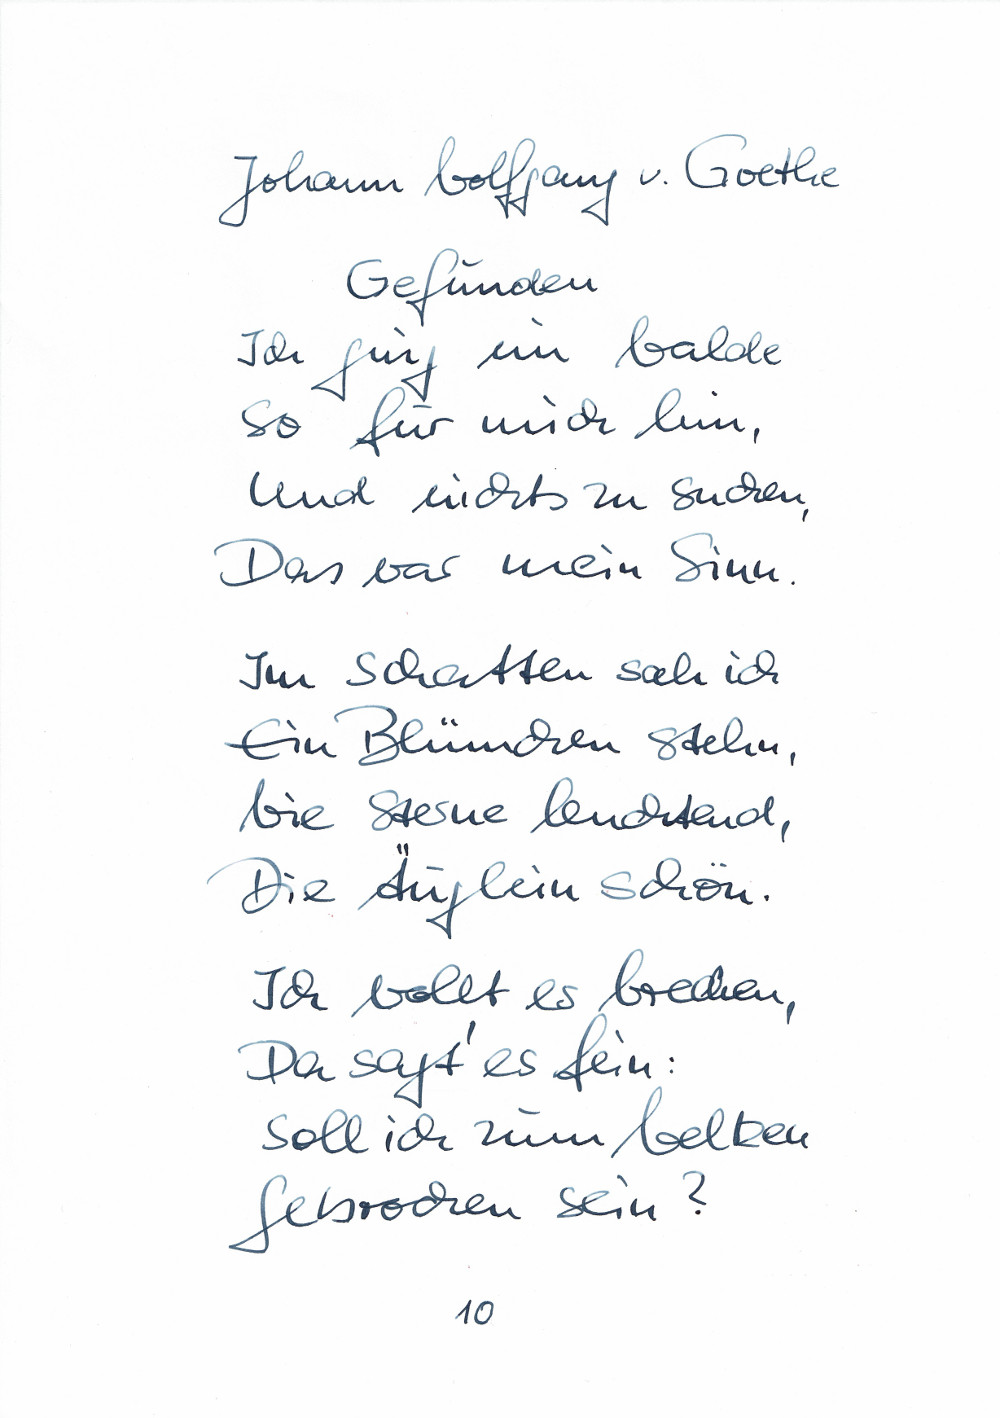 Johann Wolfgang v. Goethe
Gefunden
Ich ging im Walde
So für mich hin,
Und nichts zu suchen,
Das war mein Sinn.
Im Schatten sah ich
Ein Blümchen stehn,
Wie Sterne leuchtend,
Die Äuglein schön.
Ich wollt es brechen,
Da sagt' es fein:
Soll ich zum Welken
Gebrochen sein?
10